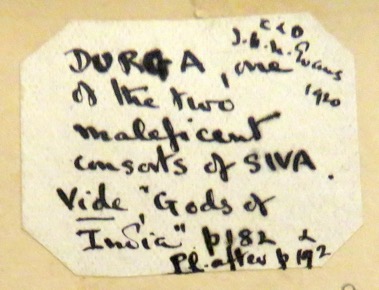 DURGA, one
of the two
maleficent
consorts of SIVA.
Vide "Gods of
India" p182 &
Pl. after p192
Evans
1920